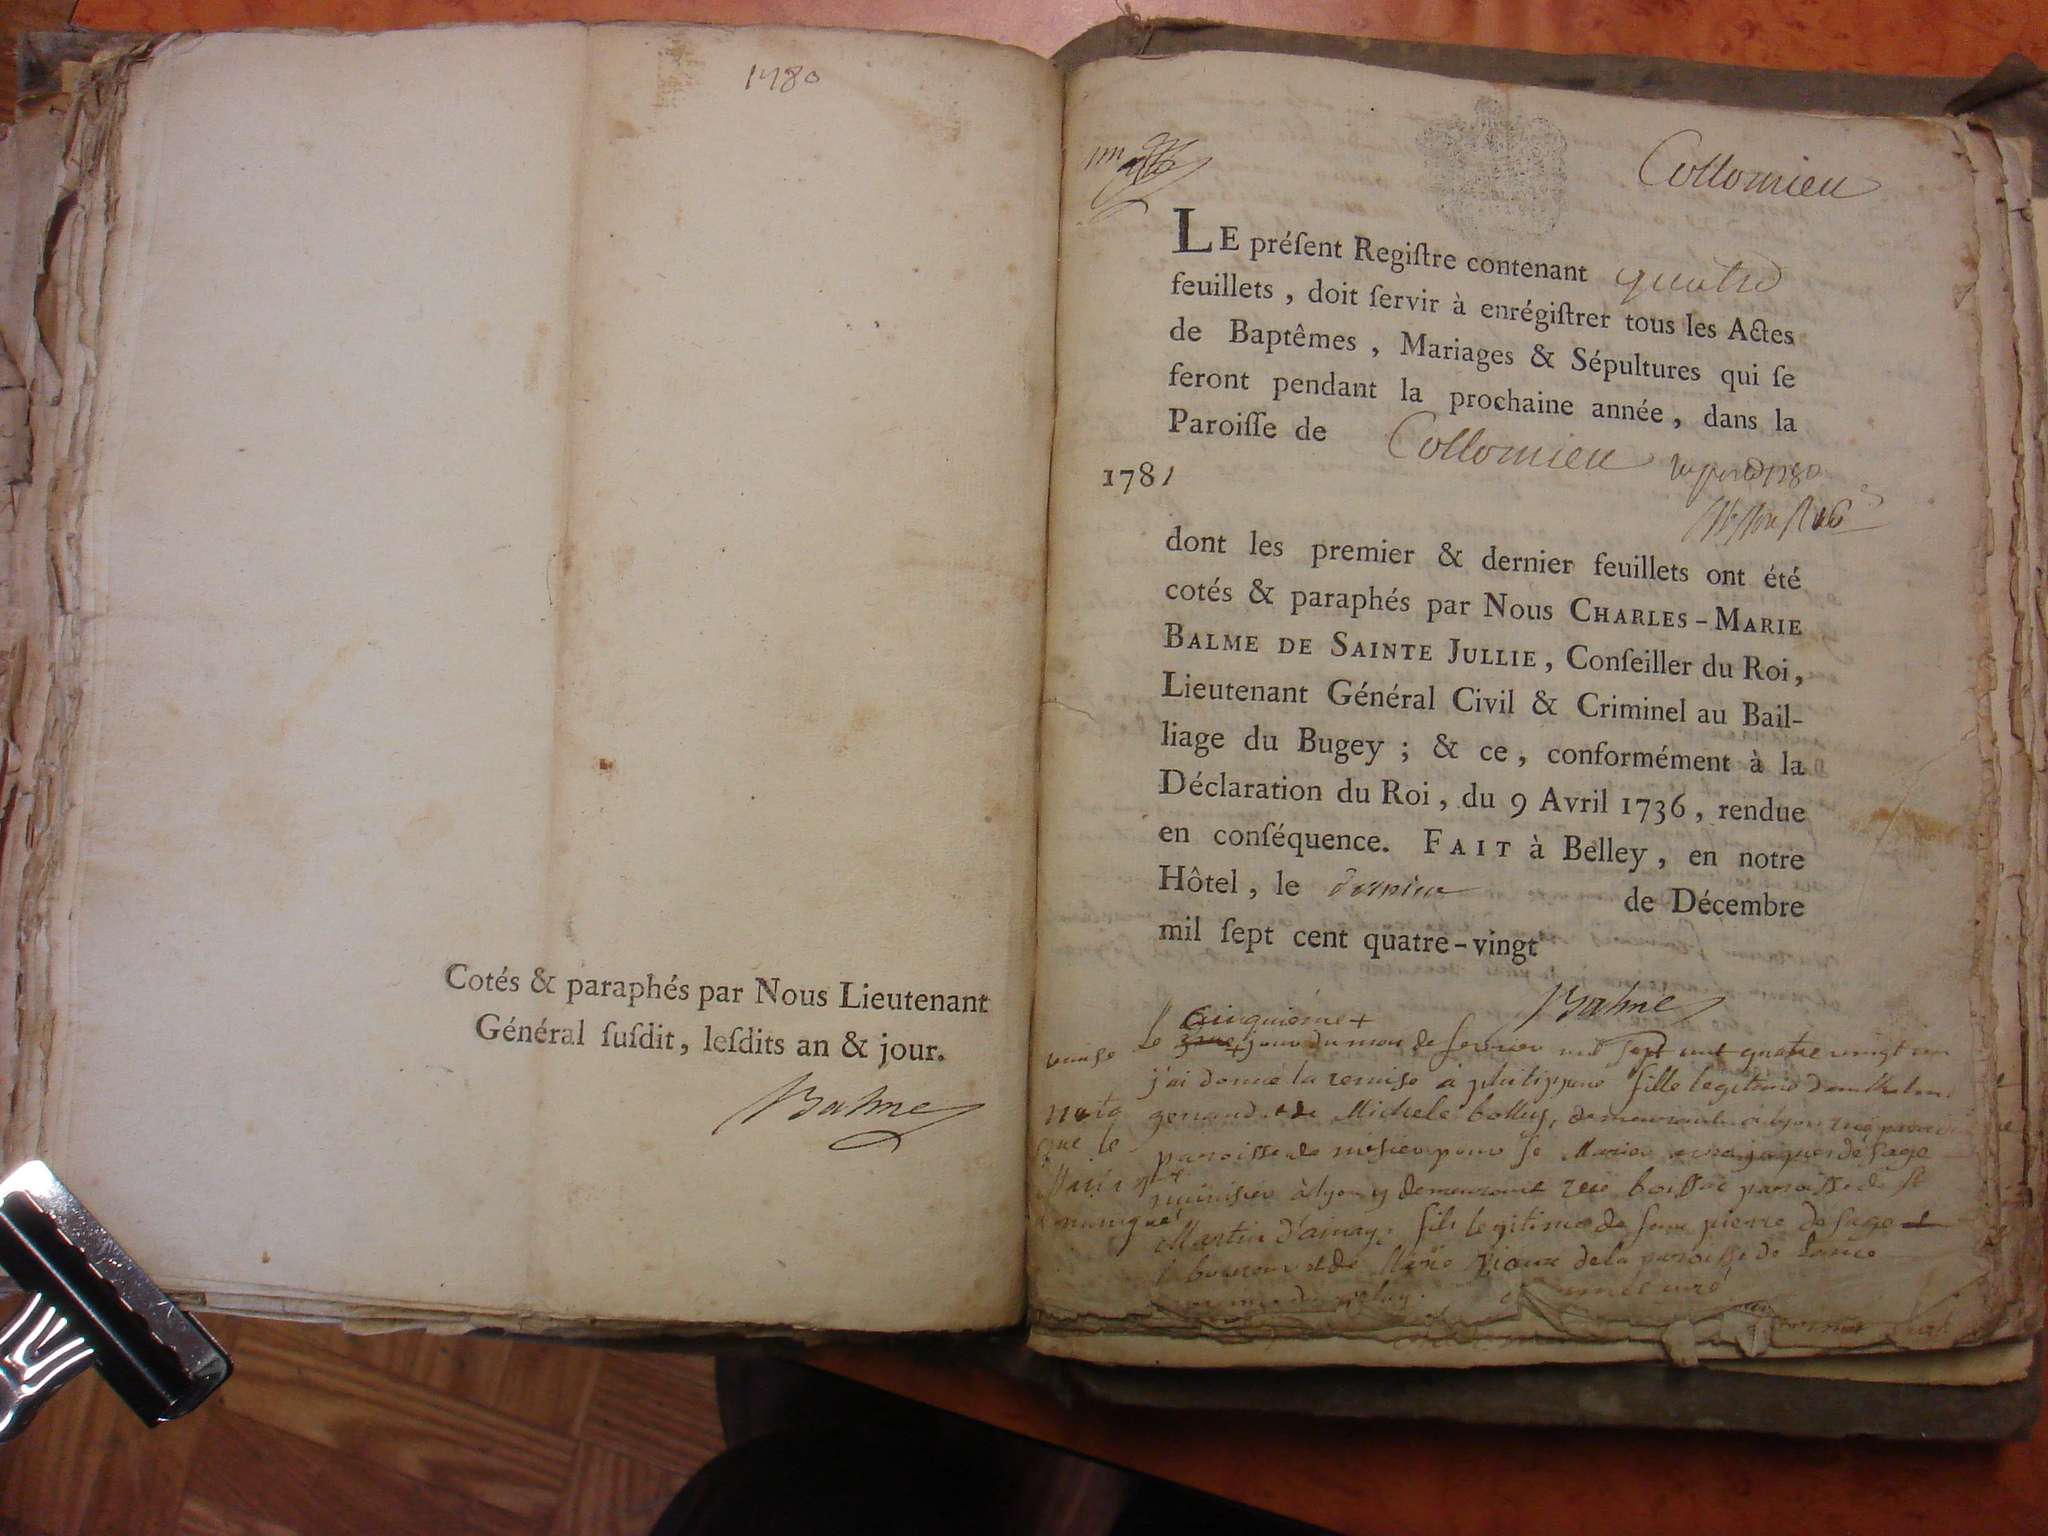 1780
Cotés & paraphés par Nous Lieutenant
Général ſuſdit, leſdits an & jour.
Balme
Collomieu
LE préſent Regiſtre contenant quatre
feuillets, doit ſervir à enrégiſtrer tous les Actes
de Baptêmes, Mariages & Sépultures qui ſe
feront pendant la prochaine année, dans la
Paroiſſe de Collomieu
1781
dont les premier & dernier feuillets ont été
cotés & paraphés par Nous CHARLES-MARIE
BALME DE SAINTE JULLIE, Conſeiller du Roi,
Lieutenant Général Civil & Criminel au Bail-
liage du Bugey; & ce, conformément à la
Déclaration du Roi, du 9 Avril 1736, rendue
en conſéquence. FAIT à Belley, en notre
Hôtel, le dernier de Décembre
mil ſept cent quatre-vingt
Balme
Cinquieme +
remise
le jour du mois de fevrier mil sept cent quatre vingt un
j'ai donné la remise à philippine fille legitime
nota
et de Michele bolley, demeurante a lyon
que le
paroisse de pour se Marier avec jaques désage
à lyon y demeurant rue boissac paroisse de st
Martin d'ainay, fils legitime de feu pierre desage
et de Marie de la paroisse de
curé